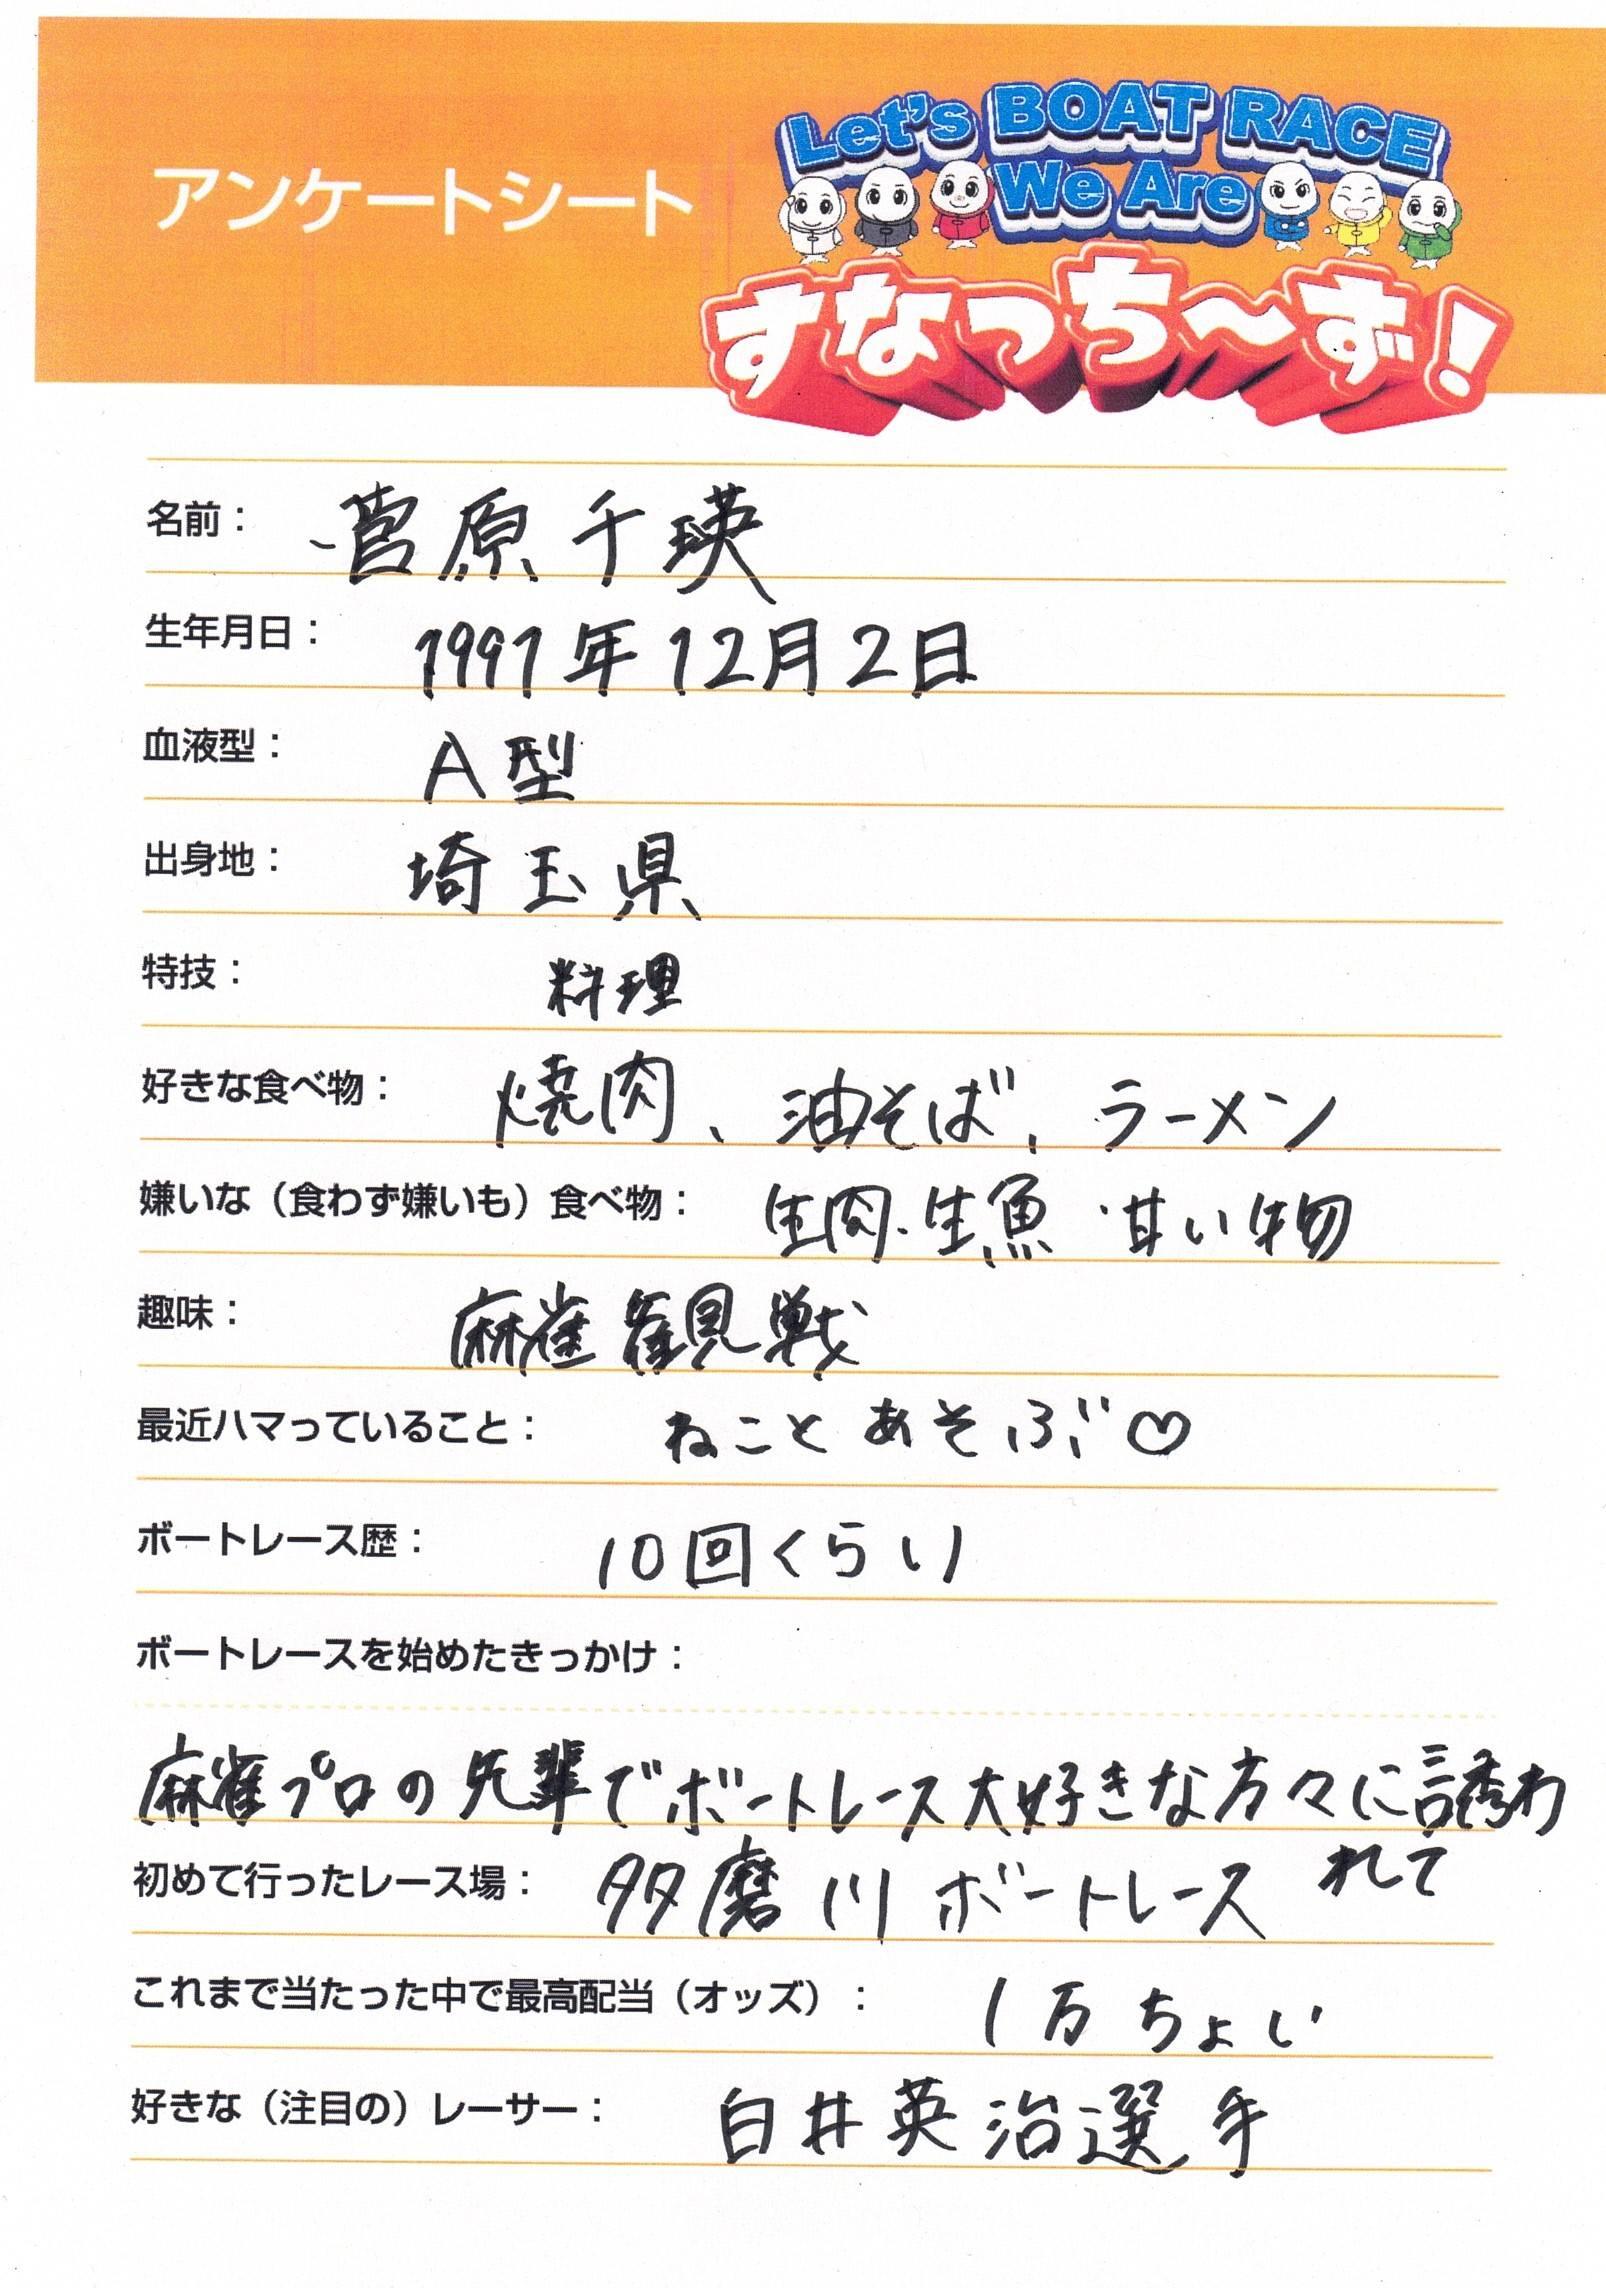 アンケートシート
Let's BOAT RACE
We Are
すなっち〜ず!
名前： 菅原千瑛
生年月日： 1991年12月2日
血液型： A型
出身地： 埼玉県
特技： 料理
好きな食べ物： 焼肉、油そば、ラーメン
嫌いな（食わず嫌いも）食べ物： 生肉・生魚・甘い物
趣味： 麻雀観戦
最近ハマっていること： ねことあそぶ♡
ボートレース歴： 10回くらい
ボートレースを始めたきっかけ：
麻雀プロの先輩でボートレース大好きな方々に誘わ
れて
初めて行ったレース場： 多摩川ボートレース
これまで当たった中で最高配当（オッズ）： 1万ちょい
好きな（注目の）レーサー： 白井英治選手